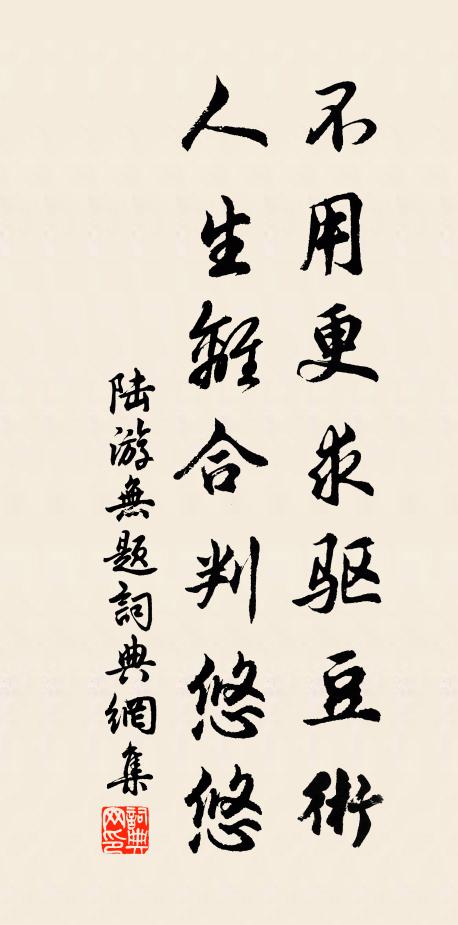 不用更求驱豆術
人生離合判悠悠
陆游無题詞典網集
詞典网印